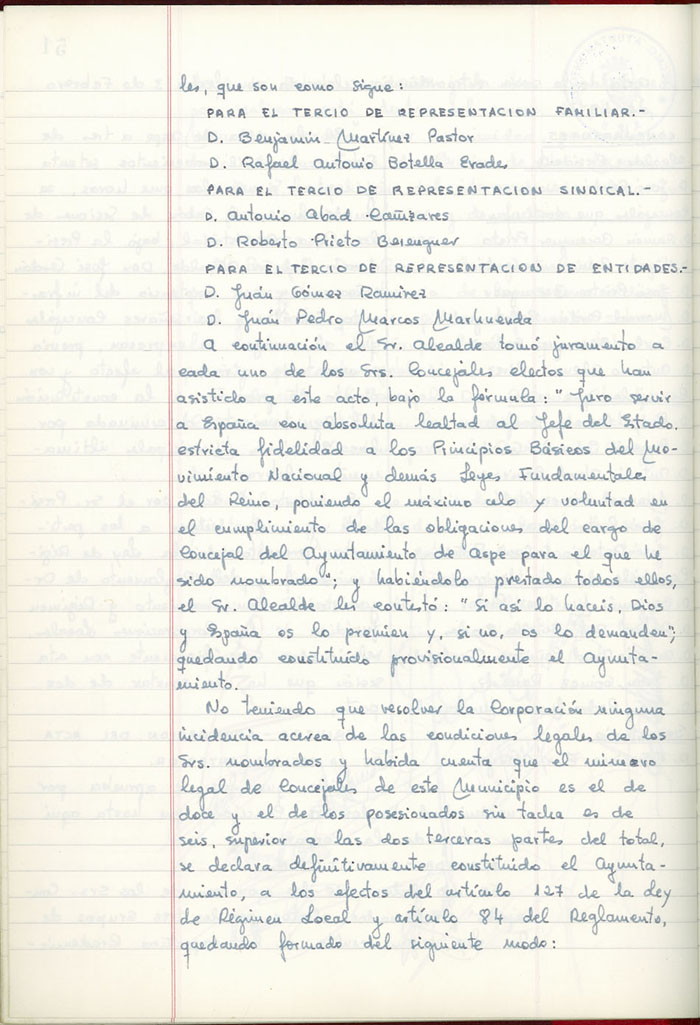 les, que son como sigue:
PARA EL TERCIO DE REPRESENTACION FAMILIAR.-
D. Benjamín Martínez Pastor
D. Rafael Antonio Botella Erades
PARA EL TERCIO DE REPRESENTACION SINDICAL.-
D. Antonio Abad Cañizares
D. Roberto Prieto Berenguer
PARA EL TERCIO DE REPRESENTACION DE ENTIDADES.-
D. Juán Gómez Ramirez
D. Juán Pedro Marcos Marhuenda
A continuación el Sr. Alcalde tomó juramento a
cada uno de los Srs. Concejales electos que han
asistido a este acto, bajo la fórmula: "Juro servir
a España con absoluta lealtad al Jefe del Estado.
estricta fidelidad a los Principios Básicos del Mo-
vimiento Nacional y demás Leyes Fundamentales
del Reino, poniendo el máximo celo y voluntad en
el cumplimiento de las obligaciones del cargo de
Concejal del Ayuntamiento de Aspe para el que he
sido nombrado"; y habiéndolo prestado todos ellos,
el Sr. Alcalde les contestó: "Si así lo haceis, Dios
y España os lo premien y, si no, os lo demanden";
quedando constituído provisionalmente el Ayunta-
miento.
No teniendo que resolver la Corporación ninguna
incidencia acerca de las condiciones legales de los
Srs. nombrados y habida cuenta que el número
legal de Concejales de este Municipio es el de
doce y el de los posesionados sin tacha es de
seis, superior a las dos terceras partes del total,
se declara definitivamente constituido el Ayunta-
miento, a los efectos del artículo 127 de la Ley
de Régimen Local y artículo 84 del Reglamento,
quedando formado del siguiente modo: